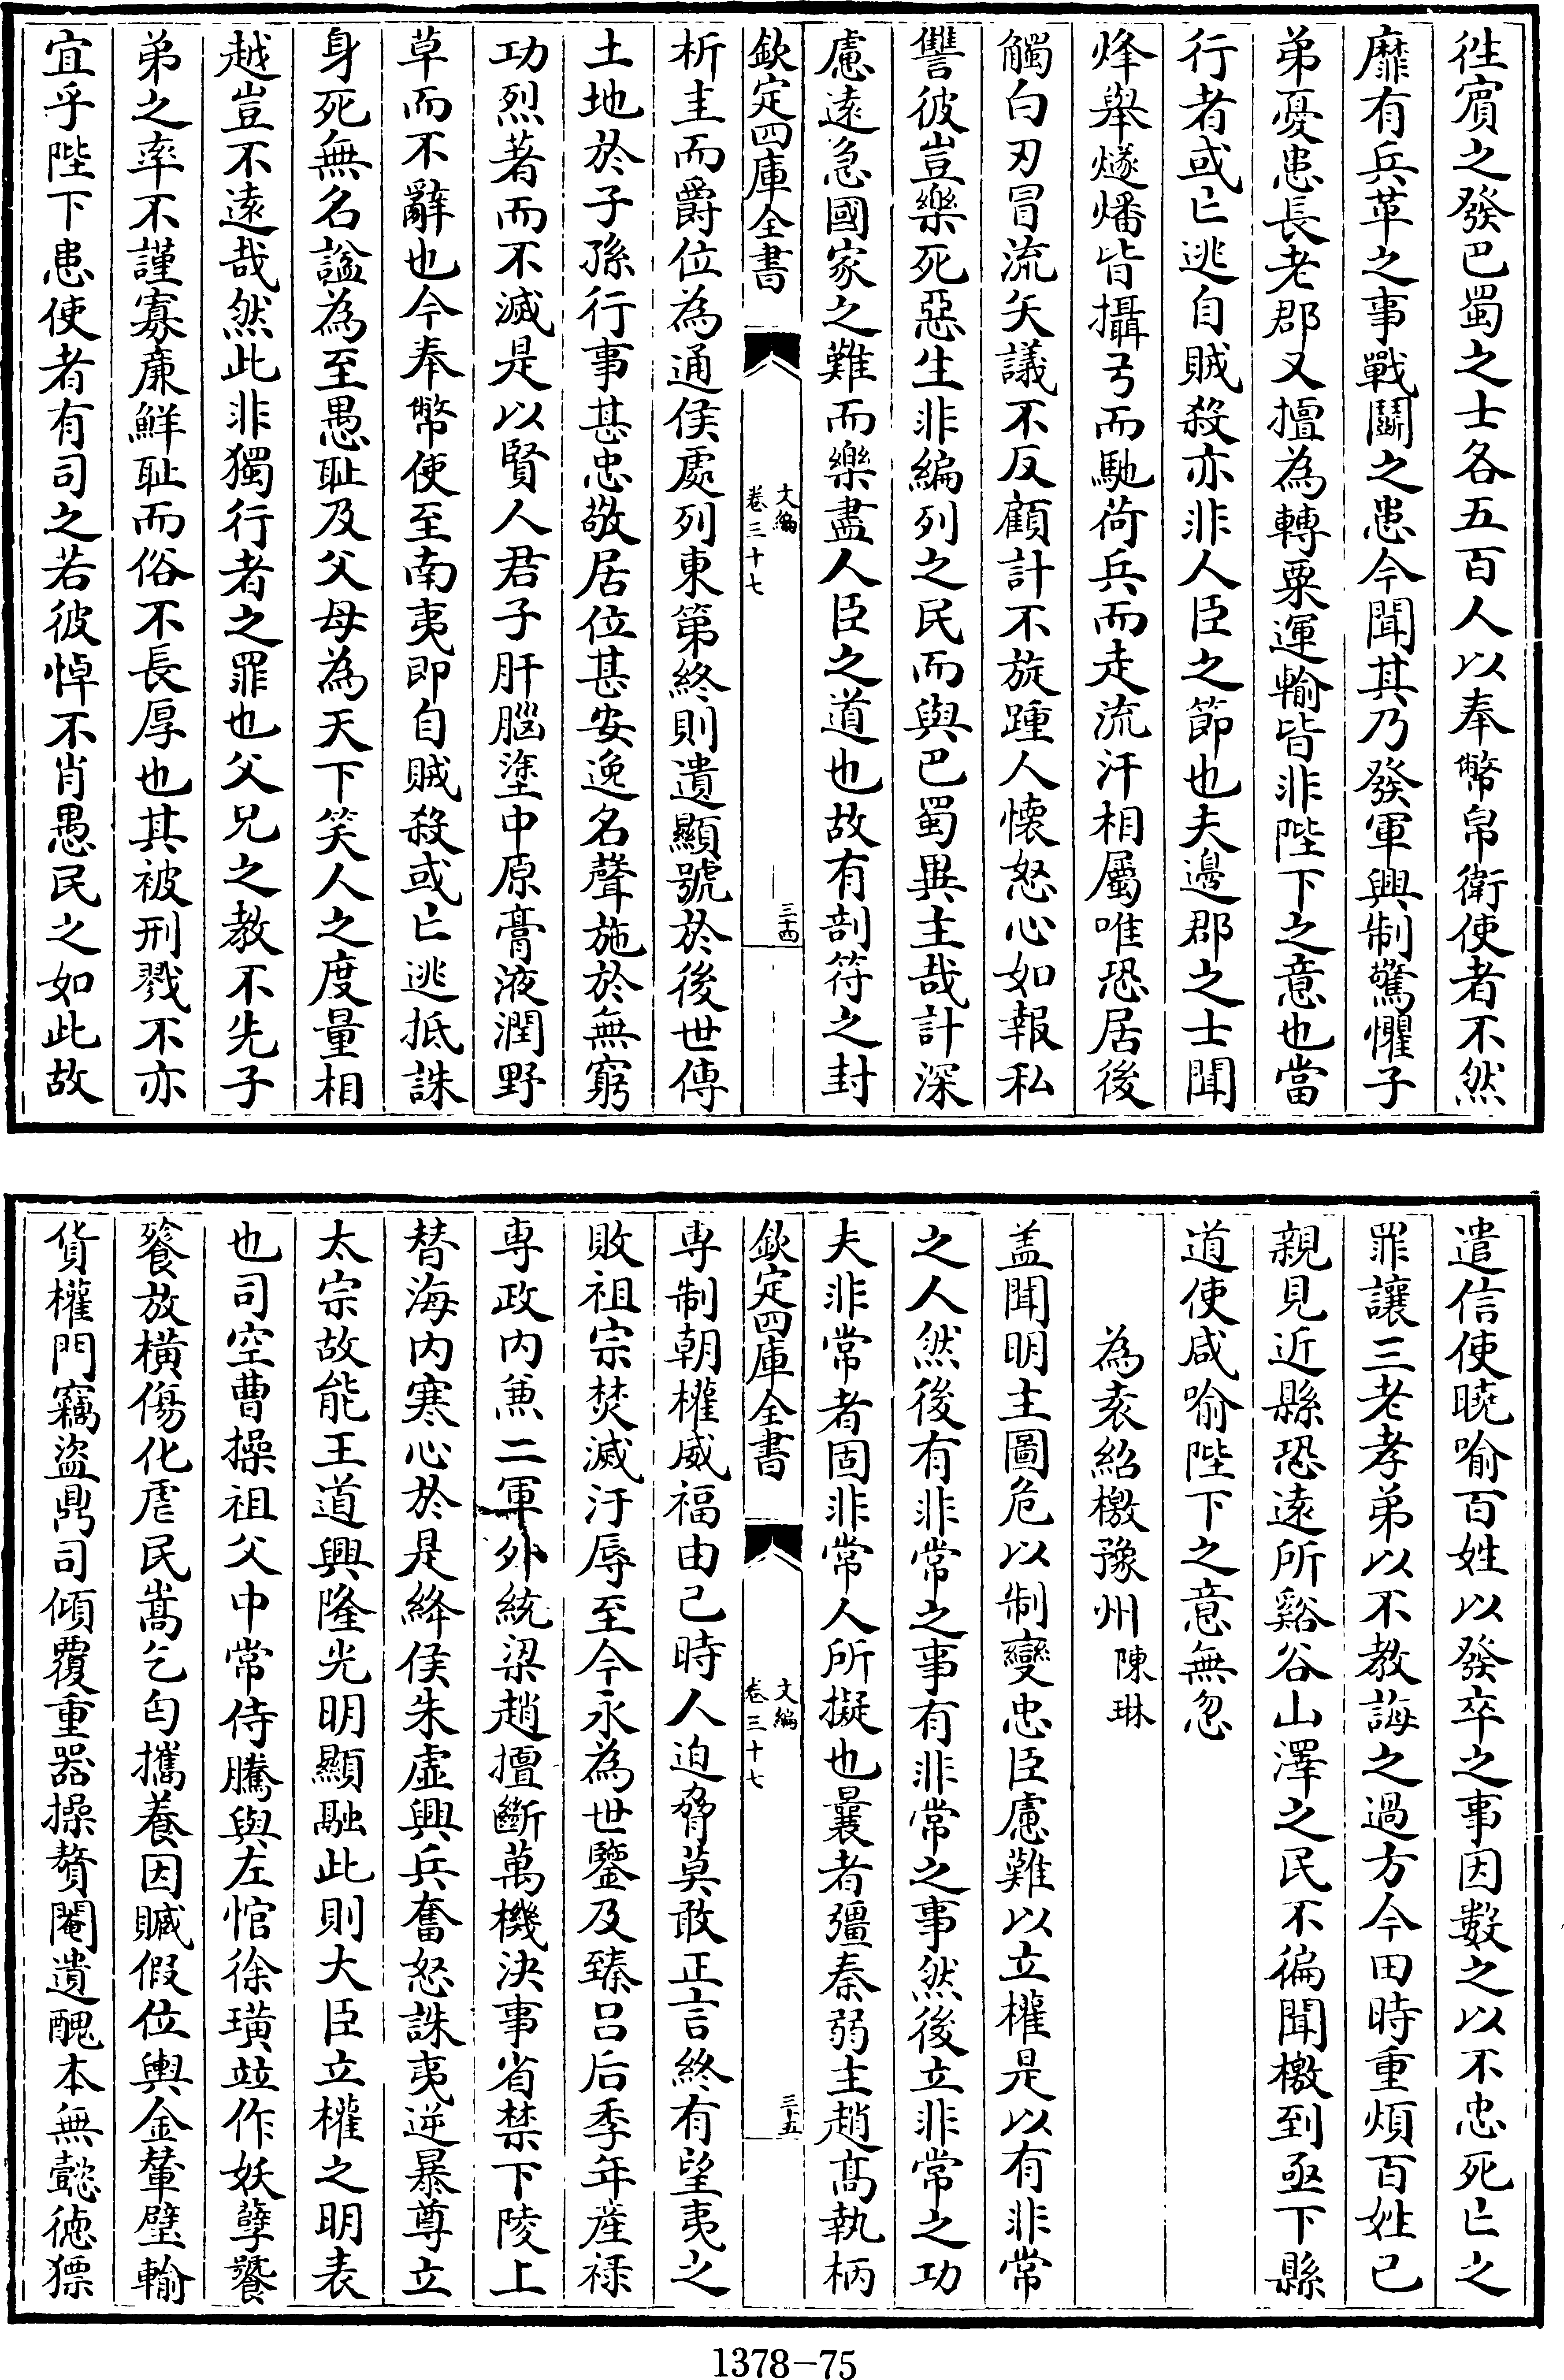 徃賔之發巴蜀之士各五百人以奉幣帛衛使者不然
靡有兵革之事戰鬭之患今聞其乃發軍興制驚懼子
弟憂患長老郡又擅為轉粟運輸皆非陛下之意也當
行者或亡逃自賊殺亦非人臣之節也夫邊郡之士聞
烽舉燧燔皆攝弓而馳荷兵而走流汗相屬唯恐居後
觸白刃冒流矢議不反顧計不旋踵人懷怒心如報私
讐彼豈樂死惡生非編列之民而與巴蜀異主哉計深
慮遠急國家之難而樂盡人臣之道也故有剖符之封
欽定四庫全書 文編 卷三十七 三十四
析圭而爵位為通侯處列東第終則遺顯號於後世傳
土地於子孫行事甚忠敬居位甚安逸名聲施於無窮
功烈著而不滅是以賢人君子肝腦塗中原膏液潤野
草而不辭也今奉幣使至南夷即自賊殺或亡逃抵誅
身死無名諡為至愚耻及父母為天下笑人之度量相
越豈不遠哉然此非獨行者之罪也父兄之教不先子
弟之率不謹寡廉鮮耻而俗不長厚也其被刑戮不亦
宜乎陛下患使者有司之若彼悼不肖愚民之如此故
遣信使曉喻百姓以發卒之事因數之以不忠死亡之
罪讓三老孝弟以不教誨之過方今田時重煩百姓已
親見近縣恐遠所谿谷山澤之民不徧聞檄到亟下縣
道使咸喻陛下之意無忽
為袁紹檄豫州 陳琳
盖聞明主圖危以制變忠臣慮難以立權是以有非常
之人然後有非常之事有非常之事然後立非常之功
夫非常者固非常人所擬也曩者彊秦弱主趙髙執柄
欽定四庫全書 文編 卷三十七 三十五
専制朝權威福由己時人迫脅莫敢正言終有望夷之
敗祖宗焚滅汙辱至今永為世鑒及臻吕后季年産禄
専政内兼二軍外統梁趙擅斷萬機決事省禁下陵上
替海内寒心於是絳侯朱虚興兵奮怒誅夷逆暴尊立
太宗故能王道興隆光明顯融此則大臣立權之明表
也司空曹操祖父中常侍騰與左悺徐璜竝作妖孽饕
餮放横傷化虐民嵩乞匄攜養因贓假位輿金輦璧輸
貨權門竊盜鼎司傾覆重器操贅閹遺醜本無懿徳獧